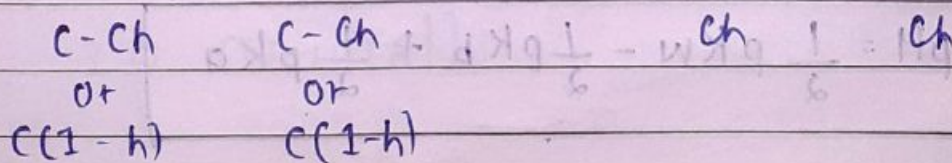 C-Ch C-Ch Ch Ch
or or
C(1-h) C(1-h)